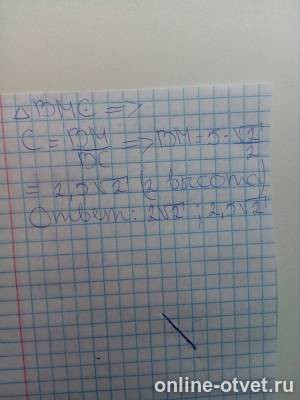 △BMC =>
C = BM/BC => BM = 5·√2/2
= 2,5√2 (2 высота)
Ответ: 2√2 ; 2,5√2
online-otvet.ru